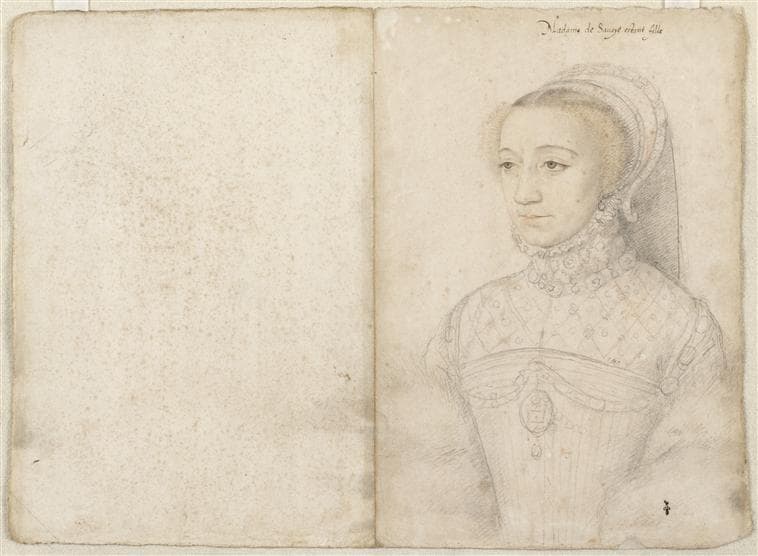 Madame de Savoye estant fille